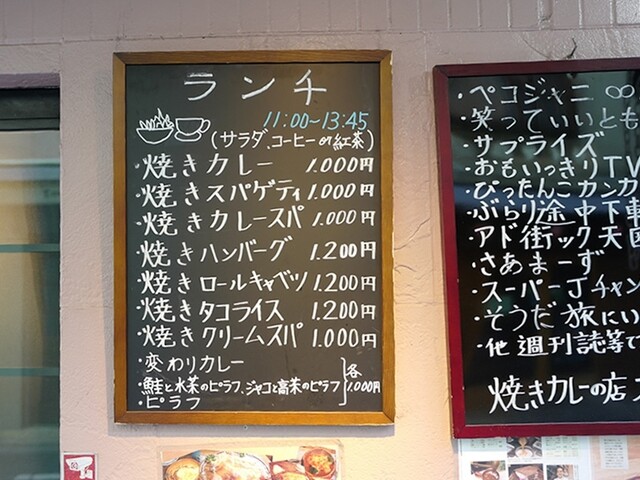 ランチ
11:00~13:45
(サラダ、コーヒー or 紅茶)
・焼きカレー 1.000円
・焼きスパゲティ 1.000円
・焼きカレースパ 1.000円
・焼きハンバーグ 1.200円
・焼きロールキャベツ 1.200円
・焼きタコライス 1.200円
・焼きクリームスパ 1.000円
・変わりカレー
・鮭と水菜のピラフ、ジャコと高菜のピラフ
・ピラフ
各
1.000円
・ペコジャニ∞
・笑っていいとも
・サプライズ
・おもいっきりTV
・ぴったんこカンカ
・ぶらり途中下車
・アド街ック天国
・さあまーず
・スーパーJチャン
・そうだ旅にい
・他週刊誌等で
焼きカレーの店